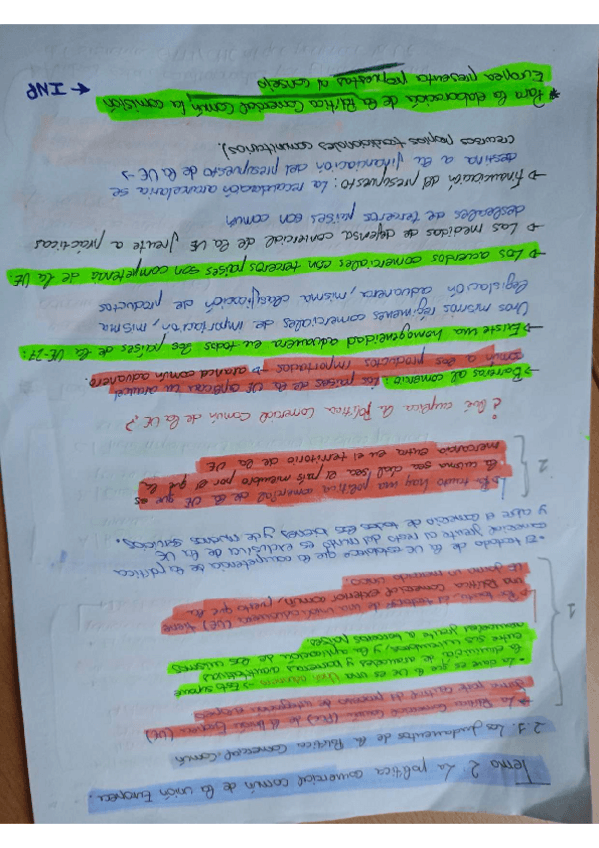 Tema 2. La política comercial común de la Unión Europea.
2.1. Los fundamentos de la Política Comercial Común
* La Política Comercial Común (PCC) de la Unión Europea (UE)
forma parte central del proceso de integración europea
• La clave es que la UE es una Unión aduanera → Esto supone
la eliminación de aranceles y barreras cuantitativas
entre sus miembros, y la aplicación de los mismos
aranceles frente a terceros países
↳ Por tanto, al tratarse de una unión aduanera (UE) tiene
una Política Comercial exterior común, puesto que la
UE como un mercado único
1
• El tratado de la UE establece que la competencia de la política
comercial frente al resto del mundo es exclusiva de la UE
y cubre el comercio de todos los bienes y de muchos servicios.
↳ Por tanto hay una política comercial de la UE que es
la misma sea cual sea el país miembro por el que la
mercancía entra en el territorio de la UE
2
¿Qué implica la Política Comercial Común de la UE?
→ Barreras al comercio: los países de la UE aplican un arancel
común a los productos importados → arancel común aduanero.
→ Existe una homogeneidad aduanera en todos los países de la UE-27:
Unos mismos regímenes comerciales de importación, misma
legislación aduanera, misma clasificación de productos
→ Los acuerdos comerciales con terceros países son competencia de la UE.
→ Las medidas de defensa comercial de la UE frente a prácticas
desleales de terceros países son común
→ Financiación del presupuesto: La recaudación arancelaria se
destina a la financiación del presupuesto de la UE →
(recursos propios tradicionales comunitarios).
* Para la elaboración de la Política Comercial Común la comisión
Europea presenta propuestas al consejo
← INP